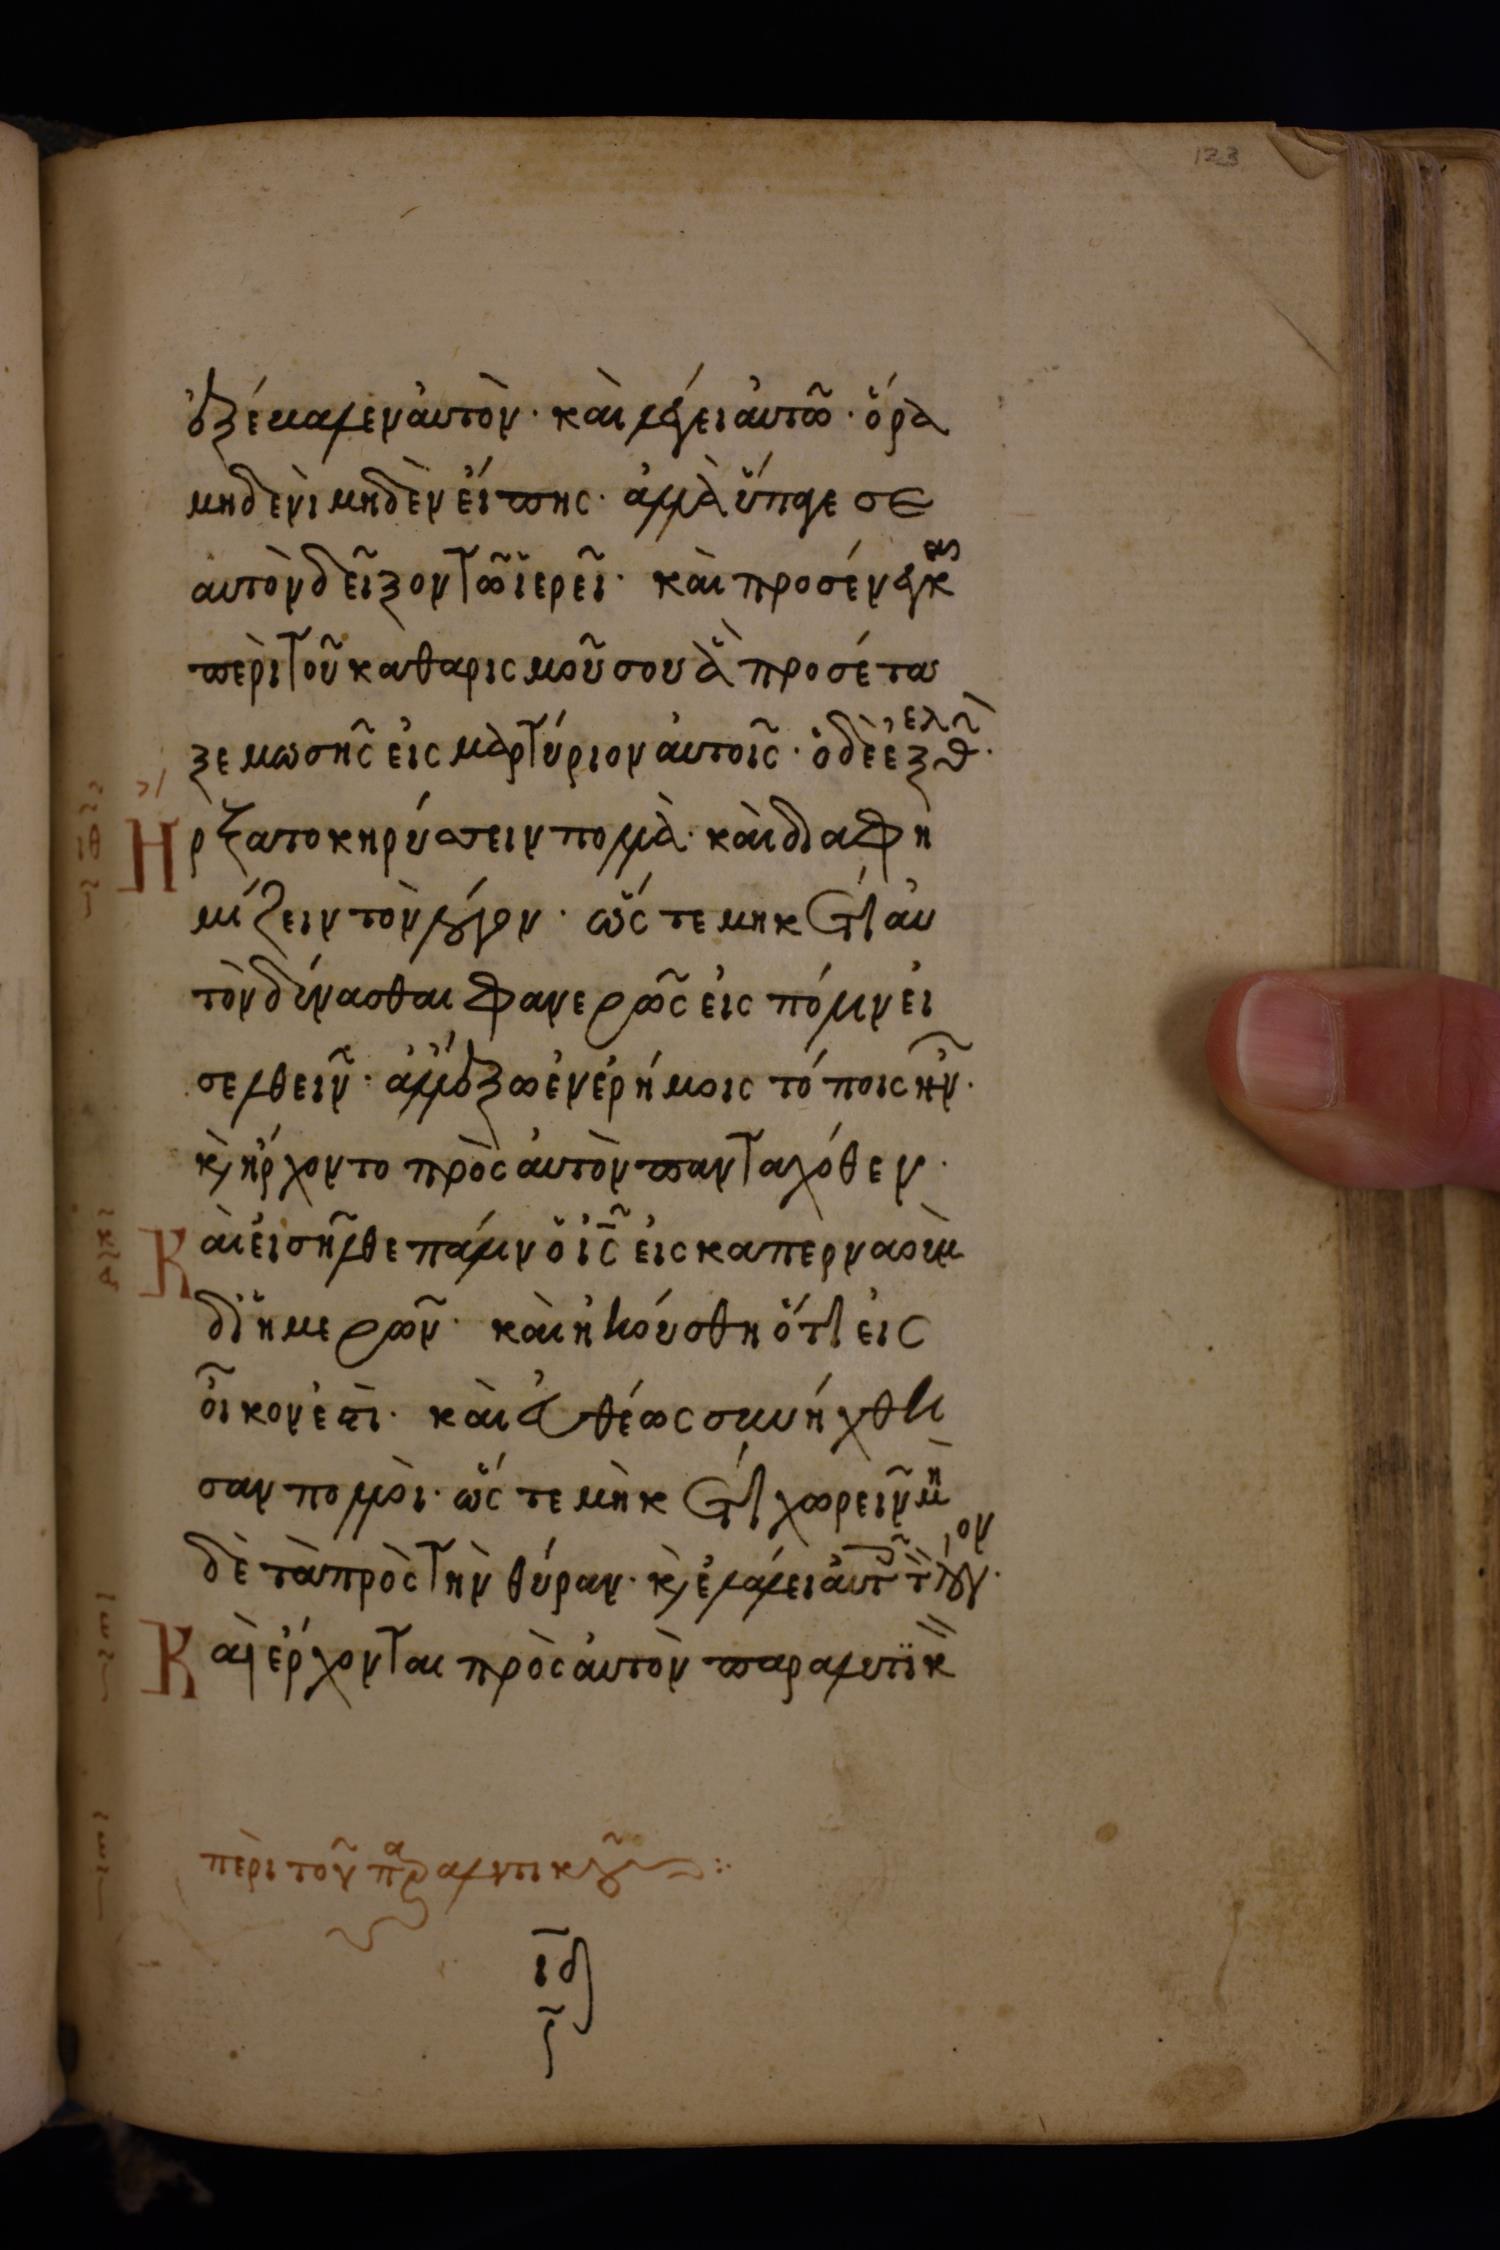 123
ἐξέβαλεν ἀυτὸν· κὰι λέγει ἀυτῶ· ὅρα
μηδενὶ μηδὲν ἔιπης· ἀλλὰ ὕπαγε σε
ἀυτὸν δεῖξον τῶ ἱερεῖ· κὰι προσένεγκε
περὶ τοῦ καθαρισμοῦ σου ἃ προσέτα
ξε μωσῆς εἰς μαρτύριον ἀυτοῖς· ὁ δὲ ἐξελθὼν·
Ηρξατο κηρύσσειν πολλὰ· κὰι διαφη
μίζειν τὸν λόγον· ὥς τε μηκέτι ἀυ
τὸν δύνασθαι φανερῶς εἰς πόλιν ἐι
σελθεῖν· ἀλλ' ἔξω ἐν ἐρήμοις τόποις ἦν·
κὶ ἤρχοντο πρὸς ἀυτὸν πανταχόθεν·
Κὰι ἐισῆλθε πάλιν ὁ ις εἰς καπερναοὺμ
δι' ἡμερῶν· κὰι ἠκούσθη ὅτι εἰς
οἶκον ἐστὶ· κὰι ἐυθέως συνήχθη
σαν πολλὸι· ὥς τε μὴκέτι χωρεῖν μὴ
δὲ τὰ πρὸς τὴν θύραν· κὶ ἐλάλει ἀυτοῖς τὸν λόγον·
Κὰι ἔρχονται πρὸς ἀυτὸν παραλυτικὸν
περὶ τοῦ παραλυτικοῦ
ιδ